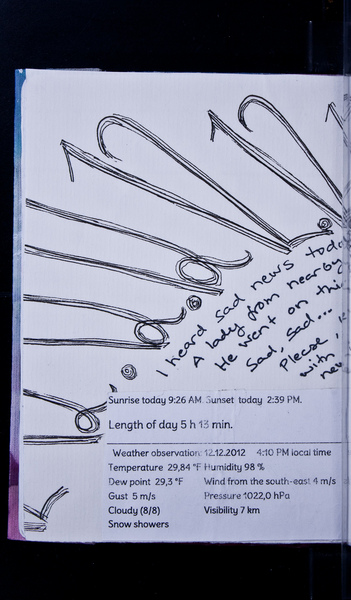 I heard sad news toda
A lady from nearby
He went on thi
Sad, sad...
Please,
with
new
Sunrise today 9:26 AM. Sunset today 2:39 PM.
Length of day 5 h 13 min.
Weather observation: 12.12.2012 4:10 PM local time
Temperature 29,84 °F Humidity 98 %
Dew point 29,3 °F Wind from the south-east 4 m/s
Gust 5 m/s Pressure 1022,0 hPa
Cloudy (8/8) Visibility 7 km
Snow showers